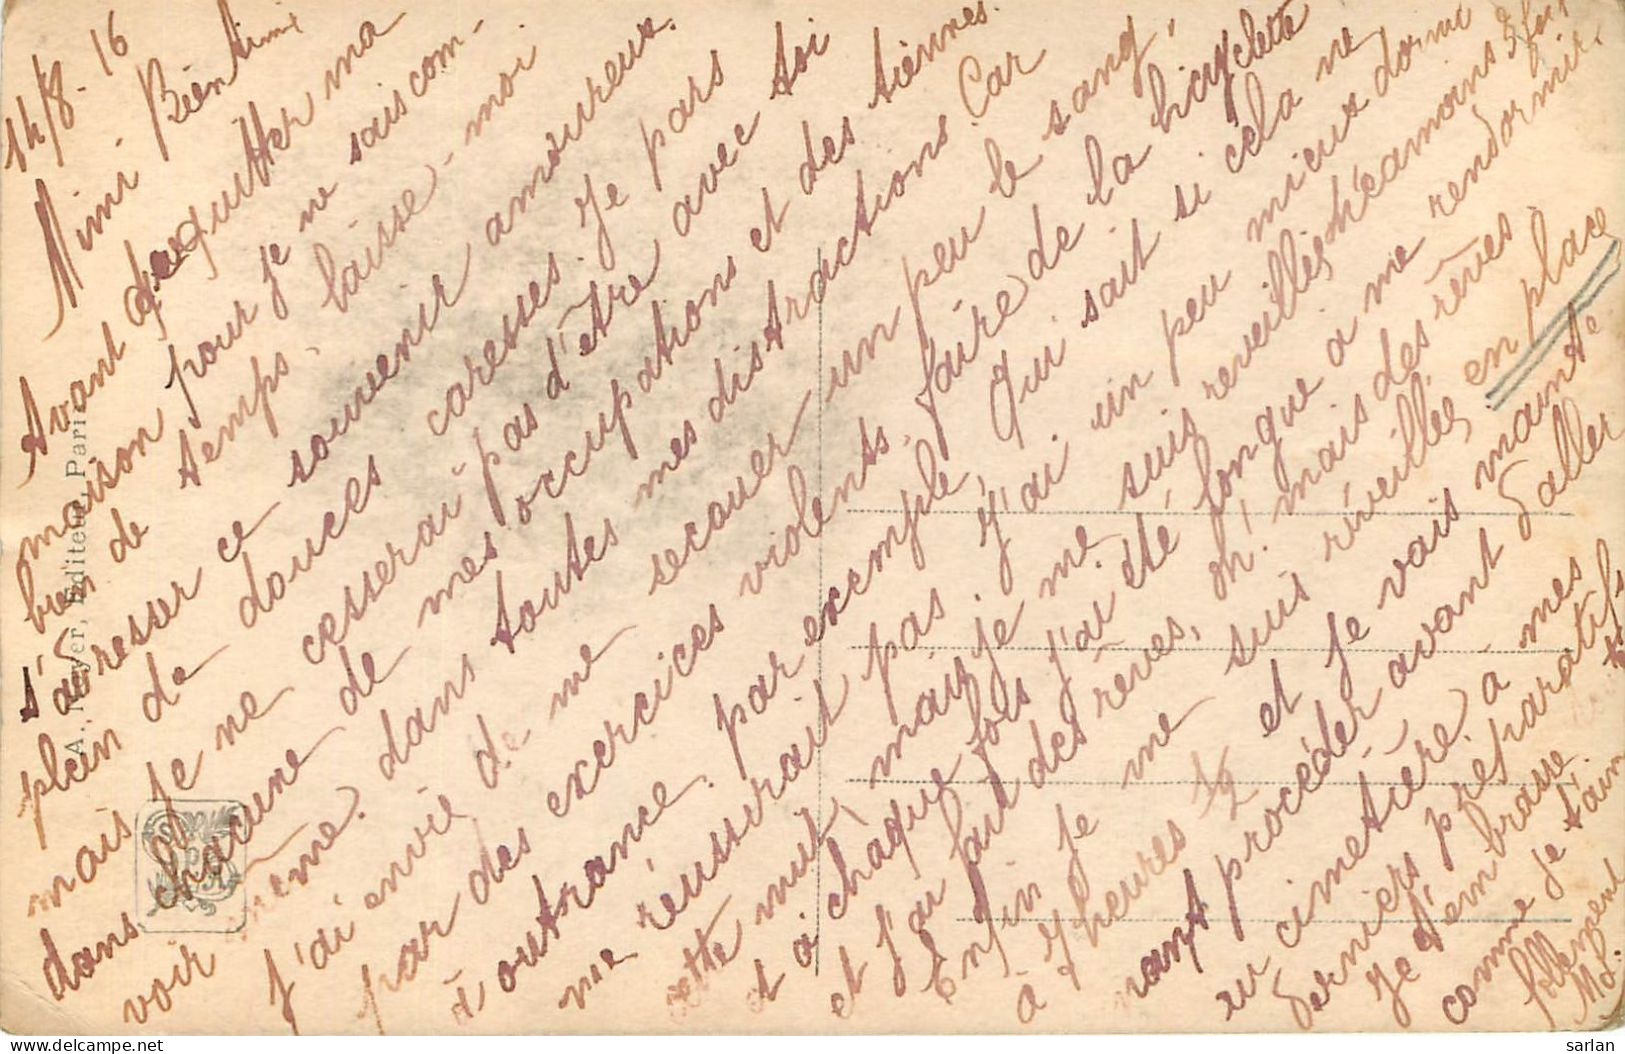 14/8. 16
Mimi Bien Aimé
Avant de quitter ma
maison pour je ne sais com-
bien de temps. laisse-moi
s'adresser ce souvenir amoureux.
plein de douces caresses. Je pars
mais je ne cesserai pas d'être avec toi
dans chacune de mes occupations et des tiennes.
voir même. dans toutes mes distractions. Car
j'ai envie de me secouer un peu le sang,
par des exercices violents. faire de la bicyclette
à outrance. par exemple, Qui sait si cela ne
me réussirait pas. J'ai un peu mieux dormi
cette nuit, mais je me suis reveillée néamoins 3 fois
et à chaque fois j'ai été longue a me rendormir.
et j'ai fait des rêves, oh! mais des rêves
Enfin je me suis réveillée en place
à 7 heures 1/2 et je vais mainte
nant procéder avant d'aller
au cimetière. à mes
derniers préparatifs
Je t'embrasse
comme je t'aim
follement
A. Noyer, Editeur, Paris
sarlan